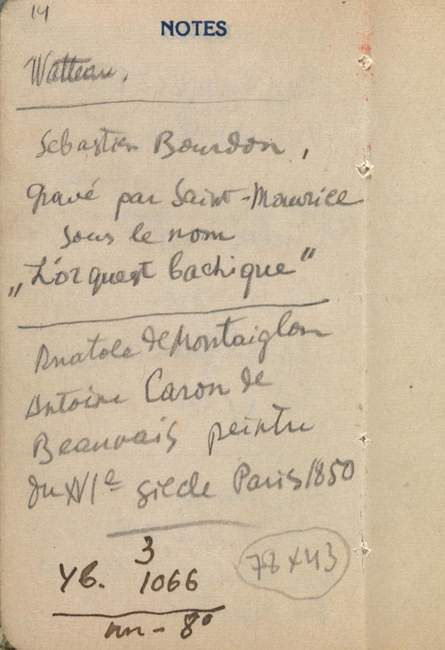 14
NOTES
Watteau.
Sebastien Bourdon,
gravé par Saint-Maurice
sous le nom
„L'orquest bachique"
Anatole de Montaiglon
Antoine Caron de
Beauvais peintre
du XVIe siecle Paris 1850
3
Yb. 1066
in - 8°
78 x 43